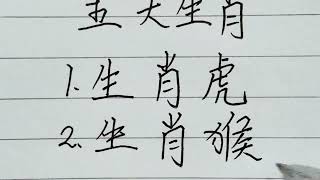 五大生肖
1.生肖虎
2.生肖猴